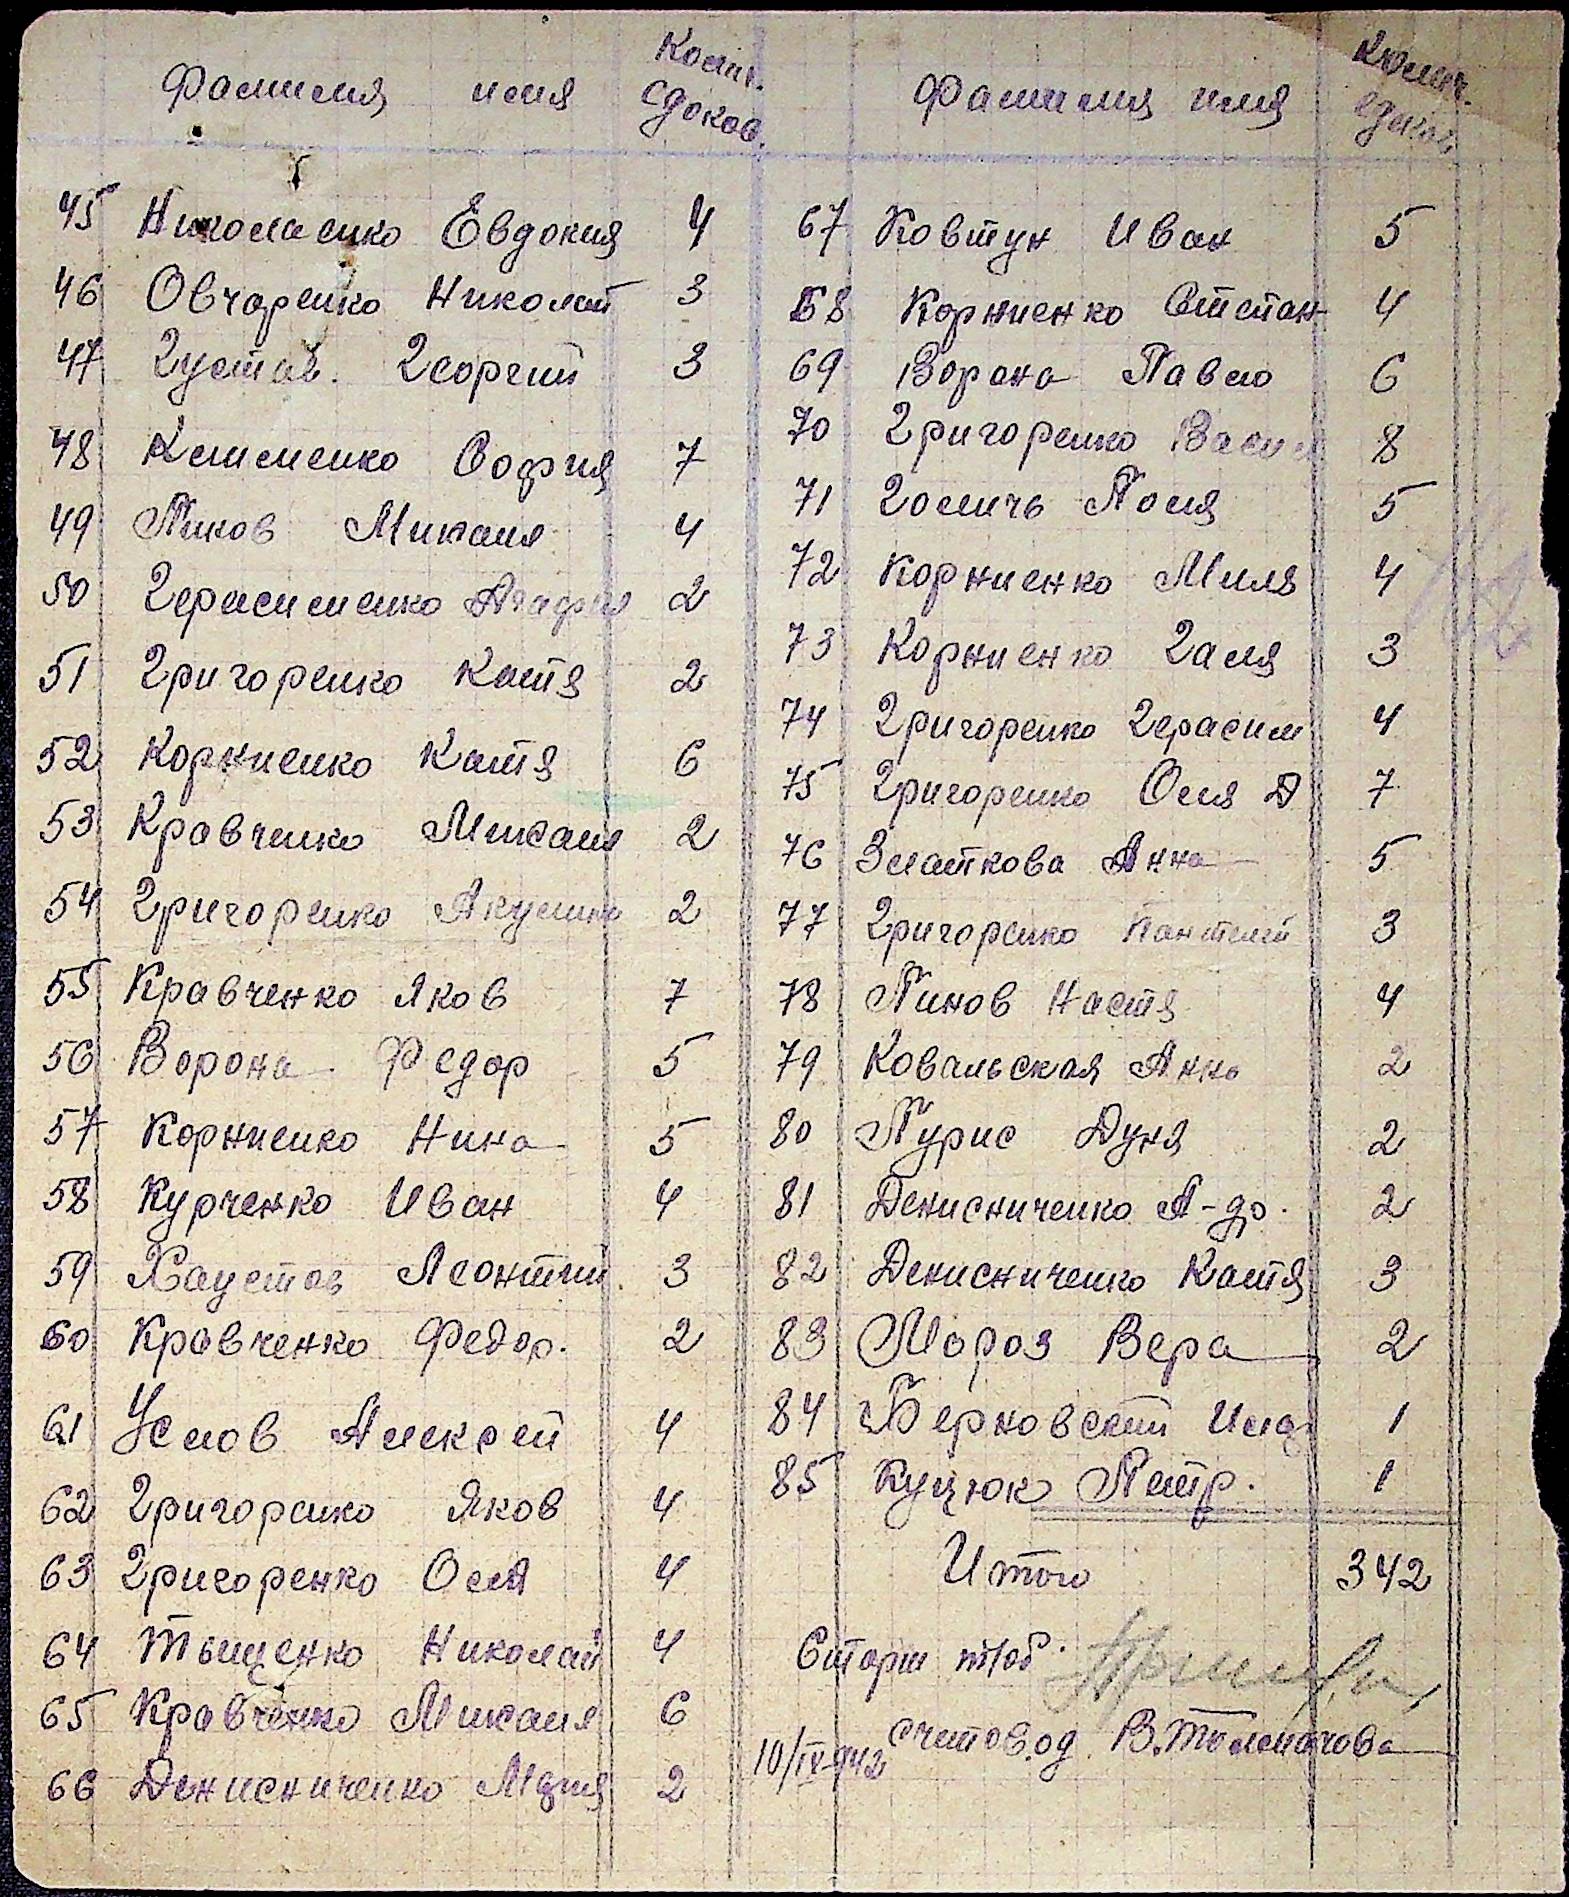 Фамилия имя Колич. едоков.
45 Николаенко Евдокия 4
46 Овчаренко Николай 3
47 Густав. Георгий 3
48 Клименко София 7
49 Панов Михаил 4
50 Герасименко Агафия 2
51 Григоренко Катя 2
52 Корниенко Катя 6
53 Кравченко Михаил 2
54 Григоренко Акулина 2
55 Кравченко Яков 7
56 Ворона Федор 5
57 Корниенко Нина 5
58 Курченко Иван 4
59 Хаустов Леонтий 3
60 Кравченко Федор. 2
61 Услов Алексей 4
62 Григоренко Яков 4
63 Григоренко Оля 4
64 Тыщенко Николай 4
65 Кравченко Михаил 6
66 Денисниченко Мария 2
Фамилия имя Колич. едоков
67 Ковтун Иван 5
68 Корниенко Степан 4
69 Ворона Павло 6
70 Григоренко Васил 8
71 Голичь Поля 5
72 Корниенко Миля 4
73 Корниенко Галя 3
74 Григоренко Герасим 4
75 Григоренко Оля Д 7
76 Златкова Анна 5
77 Григоренко Пантелей 3
78 Панов Настя 4
79 Ковальская Анна 2
80 Пурис Дуня 2
81 Денисниченко А-др. 2
82 Денисниченко Катя 3
83 Мороз Вера 2
84 Берковский 1
85 Куцюк Петр. 1
Итого 342
Старш таб.
Счетовод В.Толмачова
10/IV-942